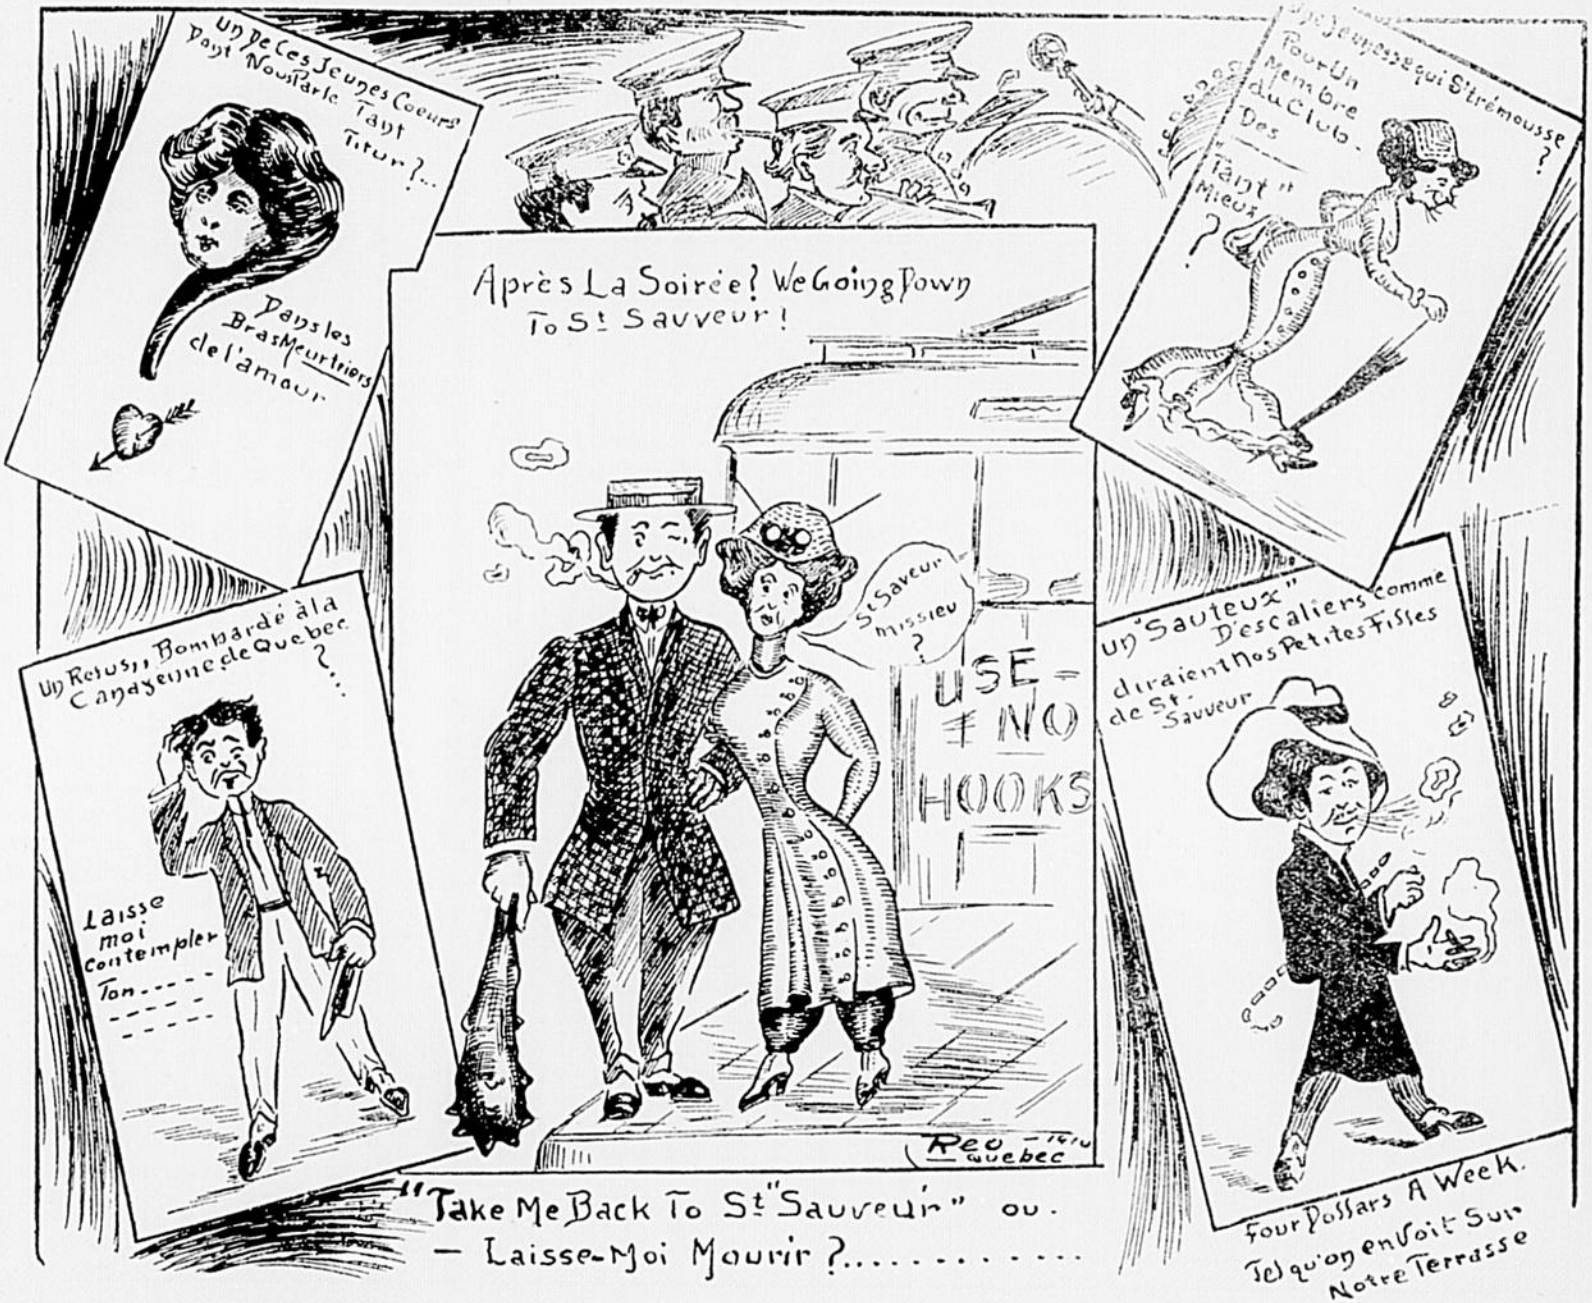 Un De Ces Jeunes Coeurs
Dont Nous Parle Tant
Titur?...
Dans les
Bras Meurtriers
de l'amour
Une Jeunesse qui S'trémousse
?
Pour Un
Membre
du Club.
Des
"Tant"
Mieux
?
Après La Soirée? We Going Down
To St Sauveur!
St Saveur
missieu
?
USE-
NO
HOOKS
Un Refus,, Bombardé à la
Canayenne de Quebec
?...
Laisse
moi
contempler
Ton----
----
----
Un "Sauteux"
D'escaliers comme
diraient Nos Petites Filles
de St-
Sauveur
Quebec
Four Dollars A Week.
Tel qu'on en Voit Sur
Notre Terrasse
"Take Me Back To St "Sauveur" ou.
- Laisse-Moi Mourir?............